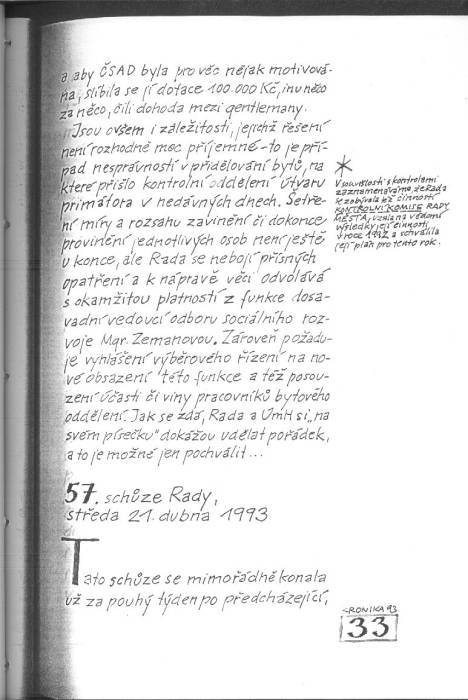 a aby ČSAD byla pro věc nějak motivová-
na, slíbila se jí dotace 100.000 Kč, inu něco
za něco, čili dohoda mezi gentlemany.
Jsou ovšem i záležitosti, jejichž řešení
není rozhodně moc příjemné - to je pří-
pad nesprávností v přidělování bytů, na
které přišlo kontrolní oddělení Útvaru
primátora v nedávných dnech. Šetře-
ní míry a rozsahu zavinění či dokonce
provinění jednotlivých osob není ještě
u konce, ale Rada se nebojí přísných
opatření a k nápravě věci odvolává
s okamžitou platností z funkce dosa-
vadní vedoucí odboru sociálního roz-
voje Mgr. Zemanovou. Zároveň požadu-
je vyhlášení výběrového řízení na no-
vé obsazení této funkce a též posou-
zení účasti či viny pracovníků bytového
oddělení. Jak se zdá, Rada a ÚmH si „na
svém písečku" dokážou udělat pořádek,
a to je možné jen pochválit ...
*
V souvislosti s kontrolami
zaznamenáváme, že Rada
se zabývala též činností
KONTROLNÍ KOMISE RADY
MĚSTA, vzala na vědomí
výsledky její činnosti
v roce 1992 a schválila
její plán pro tento rok.
57. schůze Rady,
středa 21. dubna 1993
Tato schůze se mimořádně konala
už za pouhý týden po předcházející,
KRONIKA 93
33